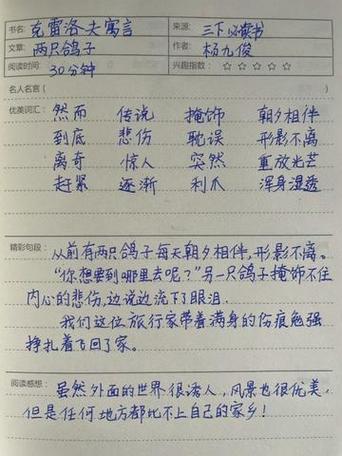 书名: 克雷洛夫寓言 来源: 三下必读书
文章: 两只鸽子 作者: 杨九俊
阅读时间: 30分钟 兴趣指数: ☆ ☆ ☆ ☆ ☆
名人名言( )
优美词汇: 然而 传说 掩饰 朝夕相伴
到底 悲伤 耽误 形影不离
离奇 惊人 突然 重放光芒
赶紧 逐渐 利爪 浑身湿透
精彩句段: 从前有两只鸽子每天朝夕相伴,形影不离。
“你想要到哪里去呢?”另一只鸽子掩饰不住
内心的悲伤,边说边流下了眼泪.
我们这位旅行家带着满身的伤痕勉强
挣扎着飞回了家。
阅读感想: 虽然外面的世界很诱人,风景也很优美,
但是任何地方都比不上自己的家乡!